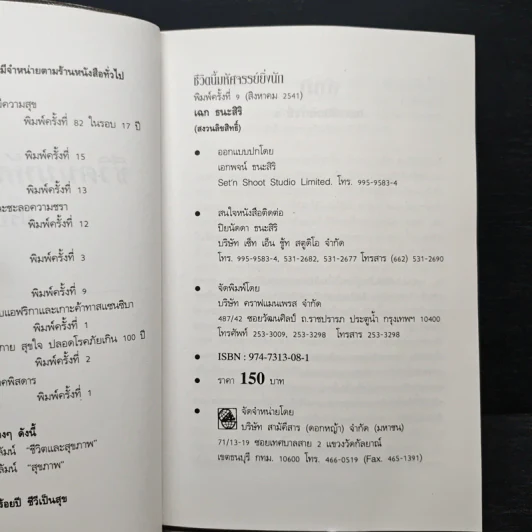 มีจำหน่ายตามร้านหนังสือทั่วไป
มีความสุข
พิมพ์ครั้งที่ 82 ในรอบ 17 ปี
พิมพ์ครั้งที่ 15
พิมพ์ครั้งที่ 13
ะชะลอความชรา
พิมพ์ครั้งที่ 12
พิมพ์ครั้งที่ 3
พิมพ์ครั้งที่ 9
บแอฟริกาและเกาะค้าทาสแซนซิบา
พิมพ์ครั้งที่ 1
กาย สุขใจ ปลอดโรคภัยเกิน 100 ปี
พิมพ์ครั้งที่ 2
คพิสดาร
พิมพ์ครั้งที่ 1
งๆ ดังนี้
ลัมน์ "ชีวิตและสุขภาพ"
ลัมน์ "สุขภาพ"
ร้อยปี ชีวีเป็นสุข
ชีวิตนี้มหัศจรรย์ยิ่งนัก
พิมพ์ครั้งที่ 9 (สิงหาคม 2541)
เฉก ธนะสิริ
(สงวนลิขสิทธิ์)
• ออกแบบปกโดย
เอกพจน์ ธนะสิริ
Set'n Shoot Studio Limited. โทร. 995-9583-4
• สนใจหนังสือติดต่อ
ปิยนัดดา ธนะสิริ
บริษัท เซ็ท เอ็น ชู้ท สตูดิโอ จำกัด
โทร. 995-9583-4, 531-2682, 531-2677 โทรสาร (662) 531-2690
• จัดพิมพ์โดย
บริษัท คราฟแมนเพรส จำกัด
487/42 ซอยวัฒนศิลป์ ถ.ราชปรารภ ประตูน้ำ กรุงเทพฯ 10400
โทรศัพท์ 253-3009, 253-3298 โทรสาร 253-3298
• ISBN : 974-7313-08-1
• ราคา 150 บาท
• จัดจำหน่ายโดย
บริษัท สามัคคีสาร (ดอกหญ้า) จำกัด (มหาชน)
71/13-19 ซอยเทศบาลสาย 2 แขวงวัดกัลยาณ์
เขตธนบุรี กทม. 10600 โทร. 466-0519 (Fax. 465-1391)